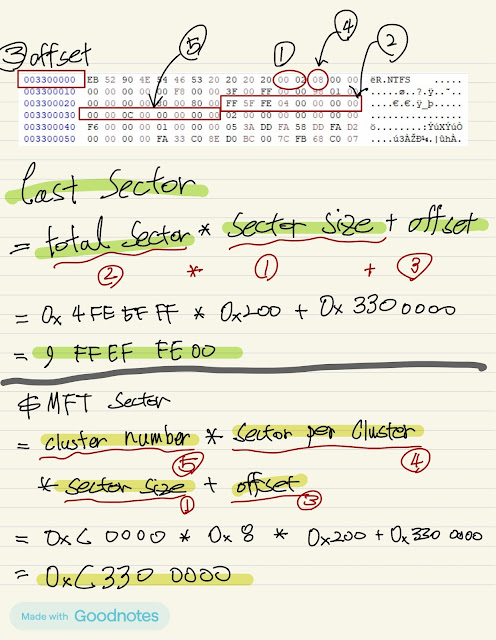 ⑤ ① ④ ②
③ offset
003300000 EB 52 90 4E 54 46 53 20 20 20 20 00 02 08 00 00 ëR.NTFS .....
003300010 00 00 00 00 00 F8 00 00 3F 00 FF 00 00 98 01 00 .....ø..?.ÿ..˜..
003300020 00 00 00 00 80 00 80 00 FF 5F FE 04 00 00 00 00 ....€.€.ÿ_þ.....
003300030 00 00 0C 00 00 00 00 00 02 00 00 00 00 00 00 00 ................
003300040 F6 00 00 00 01 00 00 00 05 3A DD FA 58 DD FA D2 ö........:ÝúXÝúÒ
003300050 00 00 00 00 FA 33 C0 8E D0 BC 00 7C FB 68 C0 07 ....ú3ÀŽÐ¼.|ûhÀ.
last Sector
= total Sector * Sector Size + offset
② * ① + ③
= 0x 4FE 5F FF * 0x200 + 0x 330 0000
= 9 FFEF FE00
$ MFT Sector
= cluster number * Sector per Cluster
⑤ ④
* sector size + offset
① ③
= 0xC 0000 * 0x8 * 0x200 + 0x330 0000
= 0xC330 0000
Made with Goodnotes